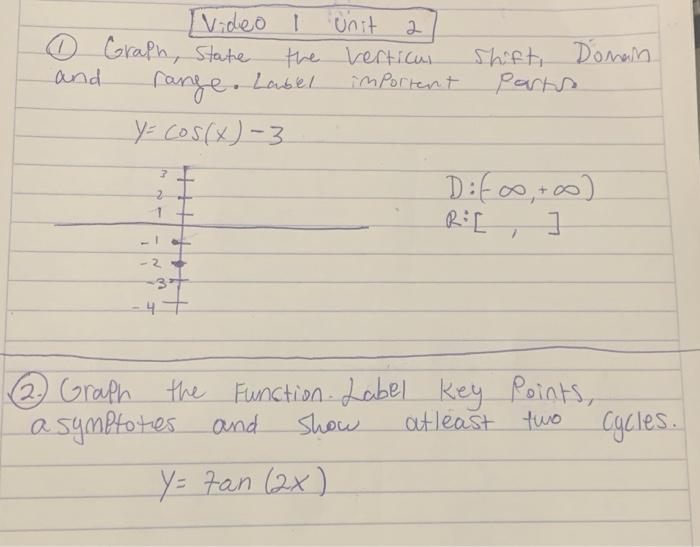 Video 1 Unit 2
① Graph, State the vertical shift, Domain
and range. Label important parts
y = cos(x) - 3
3
2
1
-1
-2
-3
-4
D: (-∞, +∞)
R: [ , ]
②. Graph the Function. Label key Points,
asymptotes and show atleast two cycles.
y = tan (2x)